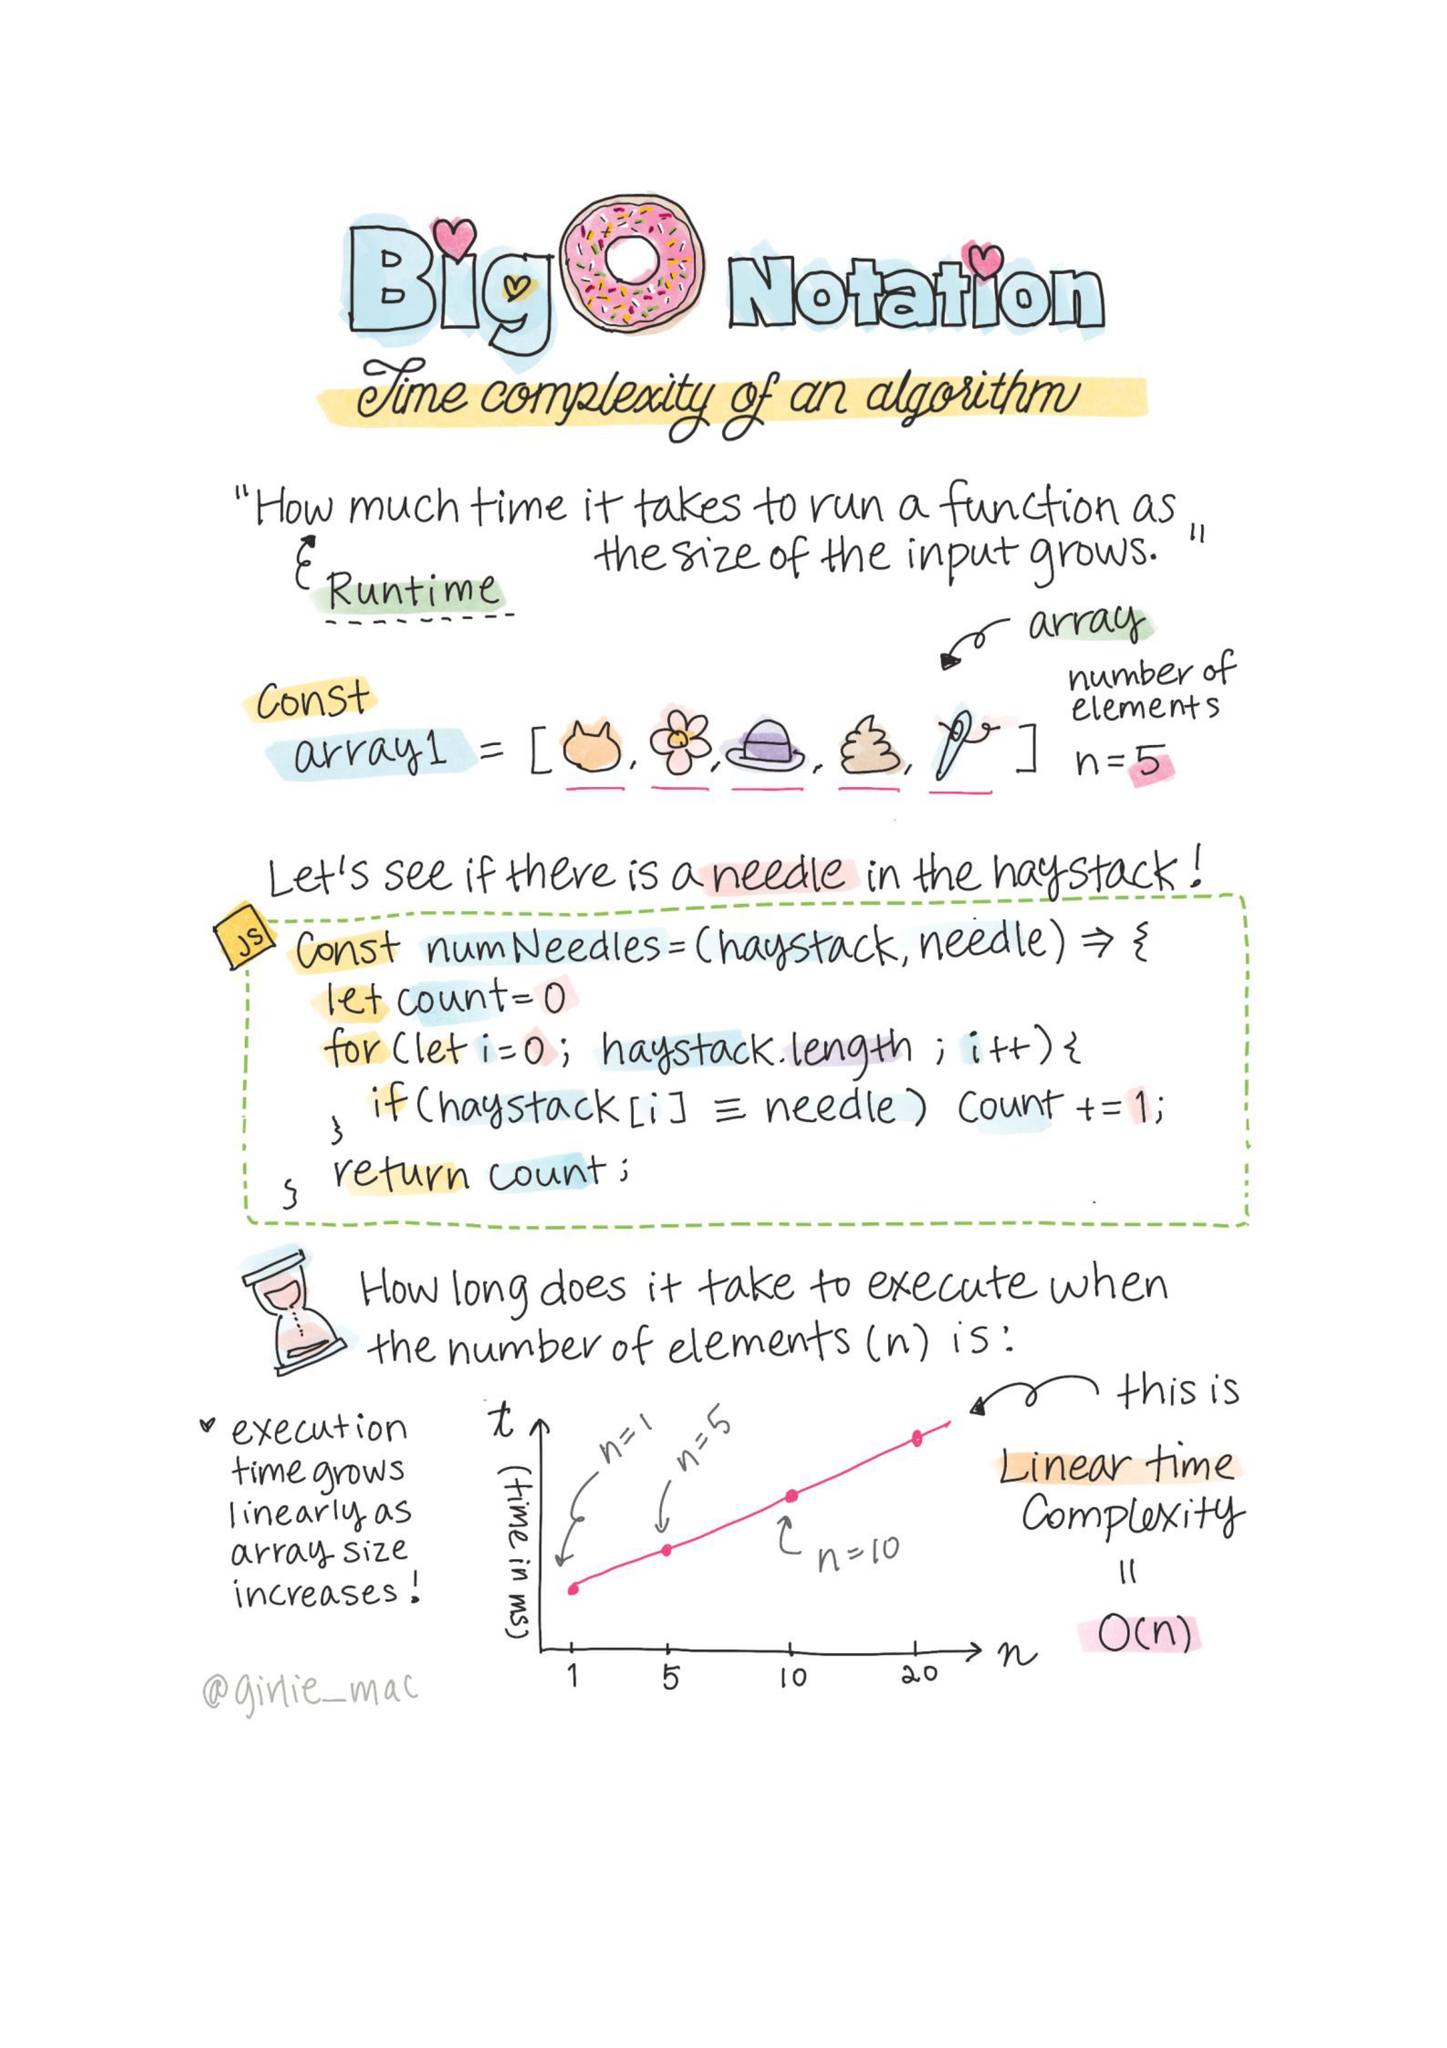 Big O Notation
Time complexity of an algorithm
"How much time it takes to run a function as
the size of the input grows."
Runtime
array
number of
elements
n=5
Const
array1 = [ , , , , ]
Let's see if there is a needle in the haystack!
JS
Const numNeedles=(haystack, needle) ⇒ {
let count=0
for (let i=0; haystack.length ; i++) {
if (haystack[i] ≡ needle) count += 1;
}
return count;
}
How long does it take to execute when
the number of elements (n) is:
execution
time grows
linearly as
array size
increases!
t
(time in ms)
n=1
n=5
n=10
1 5 10 20 n
this is
Linear time
Complexity
=
O(n)
@girlie_mac